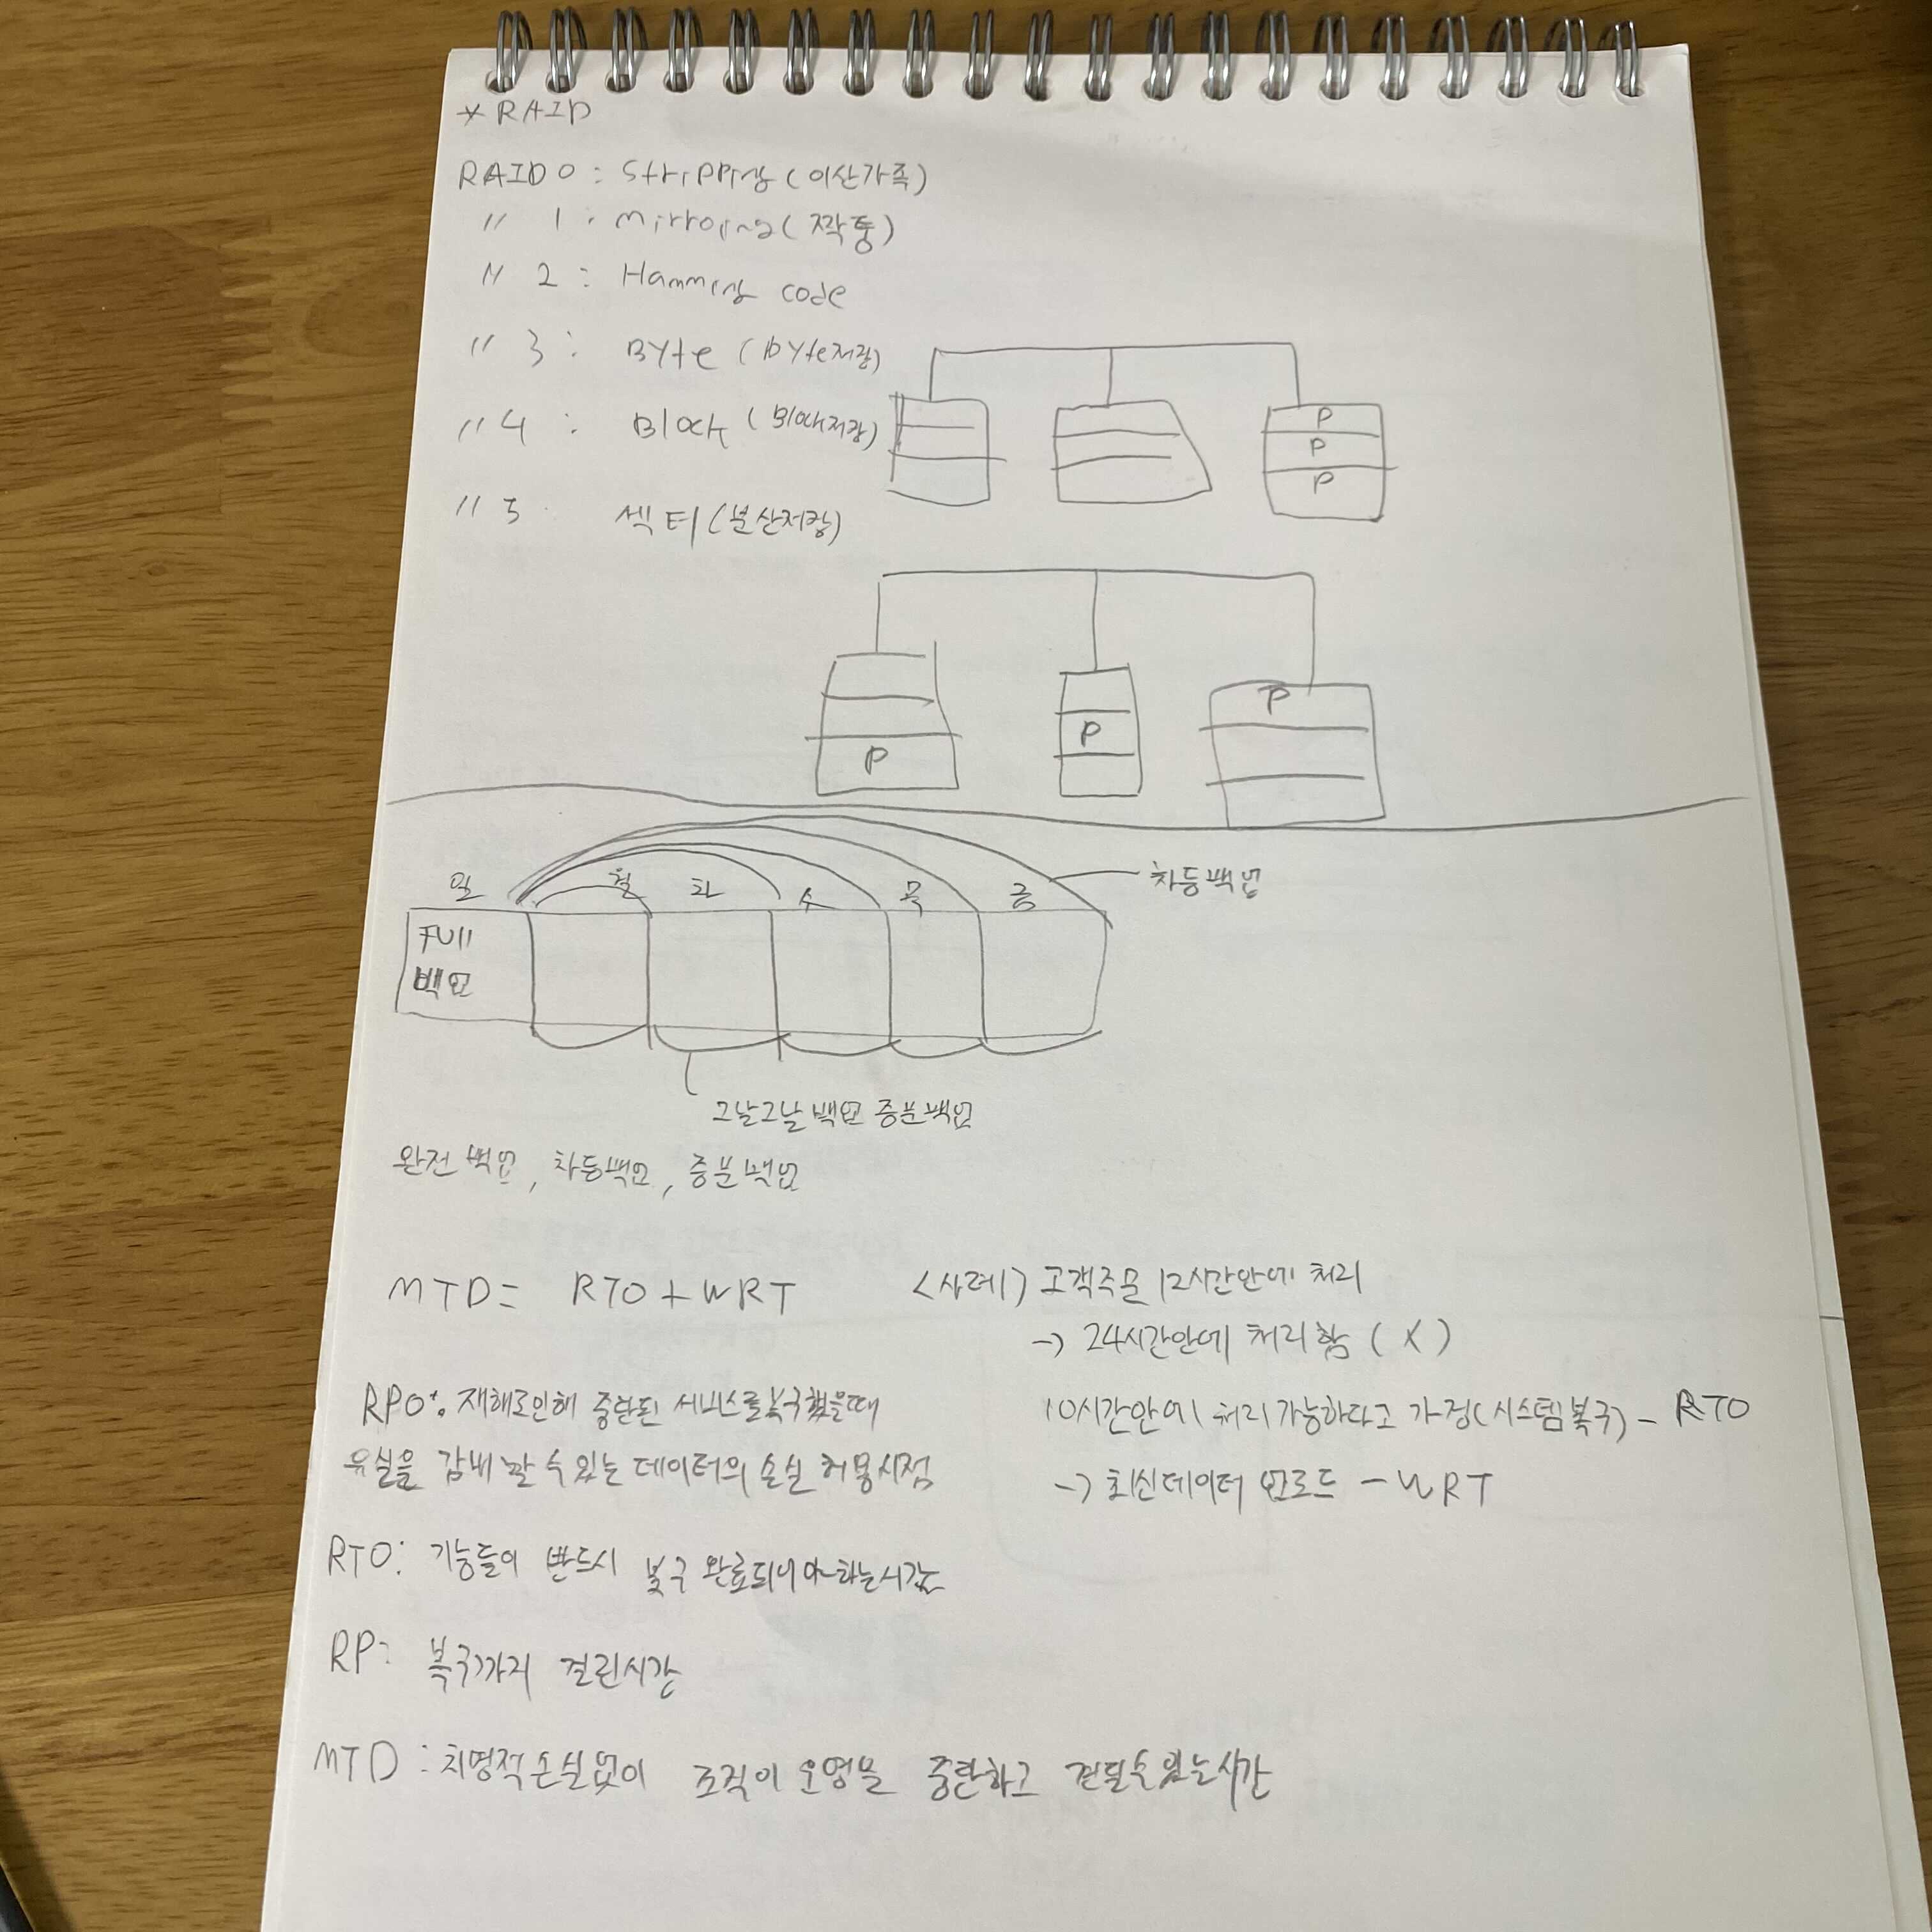 * RAID
RAID 0 : Stripping (이산가족)
〃 1 : Mirroring (짝퉁)
〃 2 : Hamming code
〃 3 : Byte (byte저장)
〃 4 : Block (Block저장)
P
P
P
〃 5 섹터 (분산저장)
P
P
P
일 월 화 수 목 금
차등백업
Full
백업
그날그날 백업 증분백업
완전백업, 차등백업, 증분백업
MTD = RTO + WRT
<사례) 고객주문 12시간안에 처리
→ 24시간안에 처리함 (X)
10시간안에 처리가능하다고 가정(시스템복구) - RTO
→ 최신데이터 업로드 - WRT
RPO : 재해로인해 중단된 서비스를복구했을때
유실을 감내할 수 있는 데이터의 손실 허용시점
RTO : 기능들이 반드시 복구 완료되어야하는시간
RP : 복구까지 걸린시간
MTD : 치명적손실없이 조직이 운영을 중단하고 견딜수있는시간